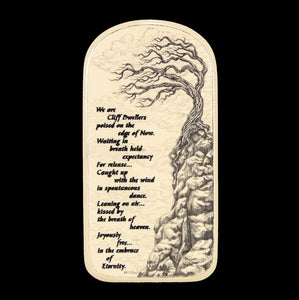 We are
Cliff Dwellers
poised on the
edge of Now.
Waiting in
breath held
expectancy
For release...
Caught up
with the wind
in spontaneous
dance.
Leaning on air...
kissed by
the breath of
heaven.
Joyously
free...
in the embrace
of
Eternity.